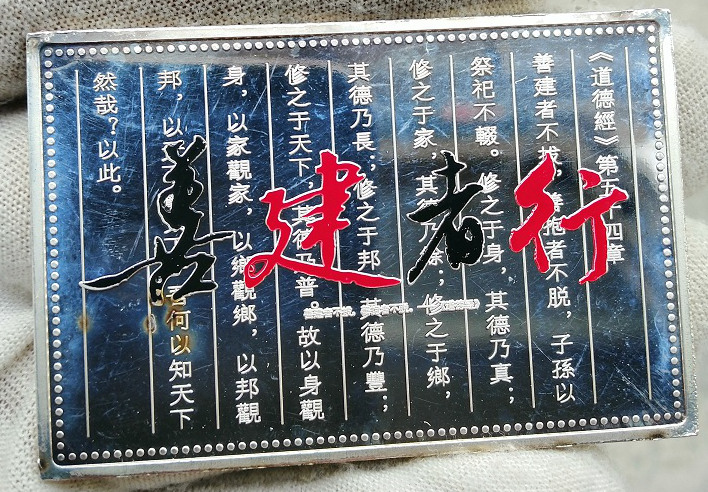 《道德經》第五十四章
善建者不拔，善抱者不脱，子孫以
祭祀不輟。修之于身，其德乃真；
修之于家，其德乃餘；修之于鄉，
其德乃長；修之于邦，其德乃豐；
修之于天下，其德乃普。故以身觀
身，以家觀家，以鄉觀鄉，以邦觀
邦，以天 吾何以知天下
然哉？以此。
善建者行